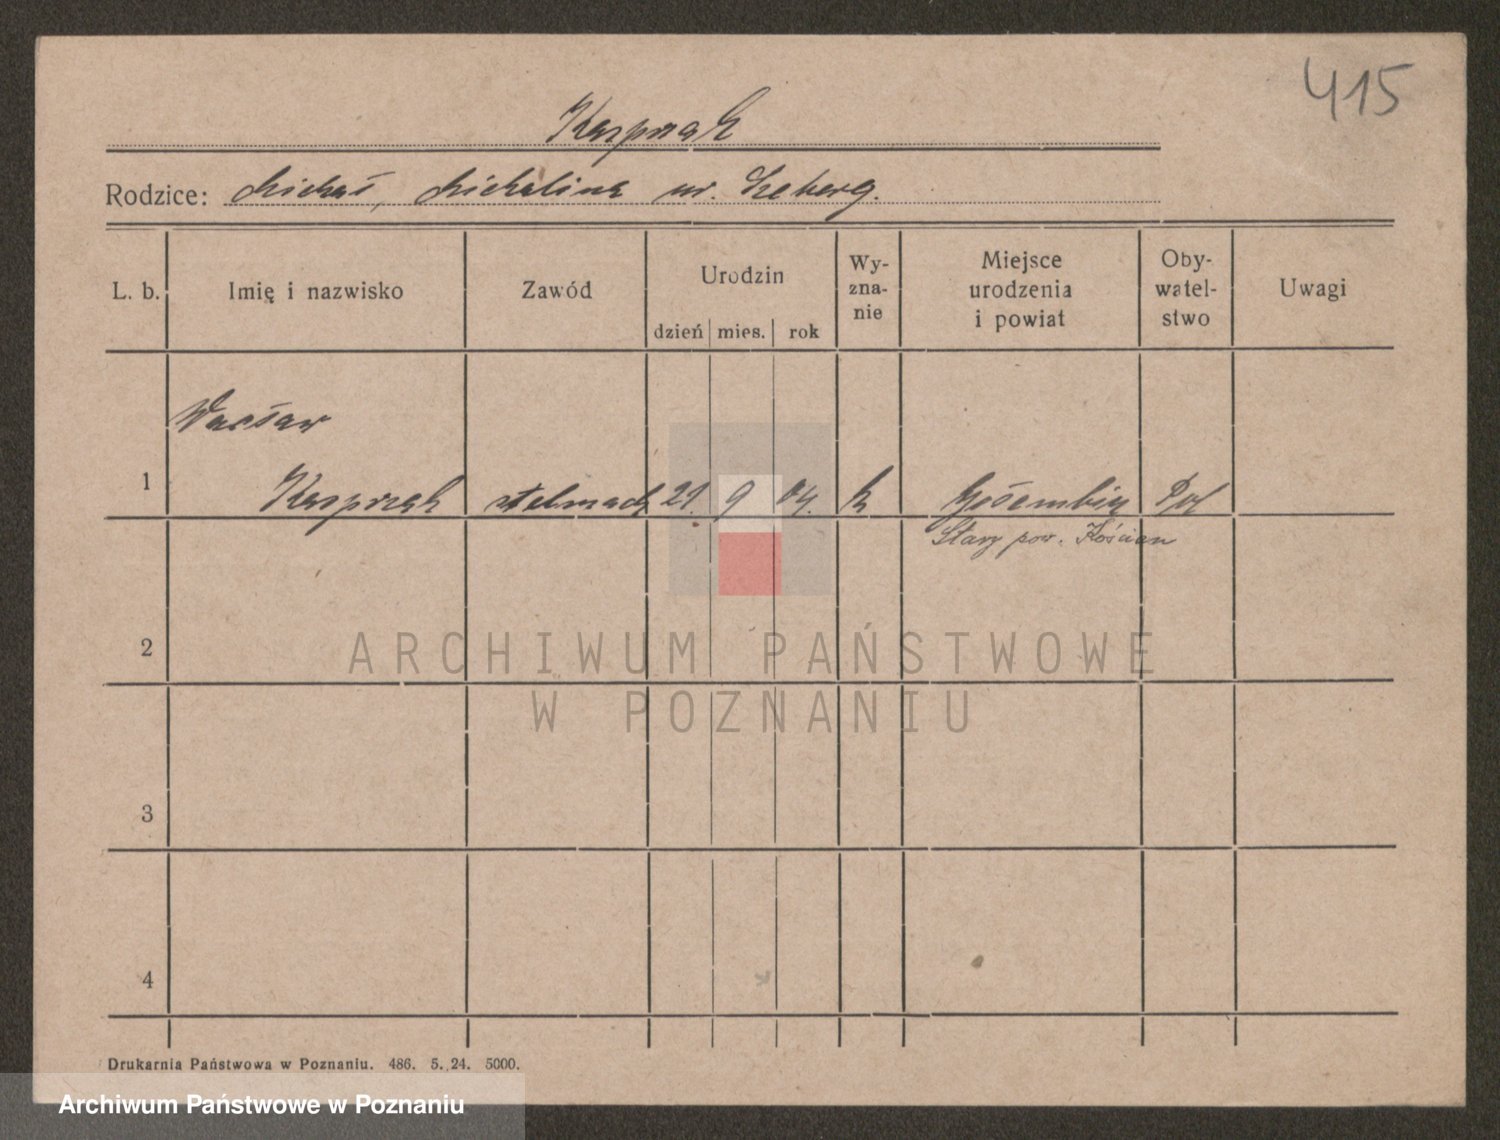 415
Kasprzak
Rodzice: Michał, Michalina ur. Szeberg.
L. b. Imię i nazwisko Zawód Urodzin dzień mies. rok Wy-zna-nie Miejsce urodzenia i powiat Oby-watel-stwo Uwagi
Wacław
1 Kasprzak stelmach 21. 9 04. k Gołembin Pol
Stary pow. Kościan
2
ARCHIWUM PAŃSTWOWE
W POZNANIU
3
4
Drukarnia Państwowa w Poznaniu. 486. 5. 24. 5000.
Archiwum Państwowe w Poznaniu